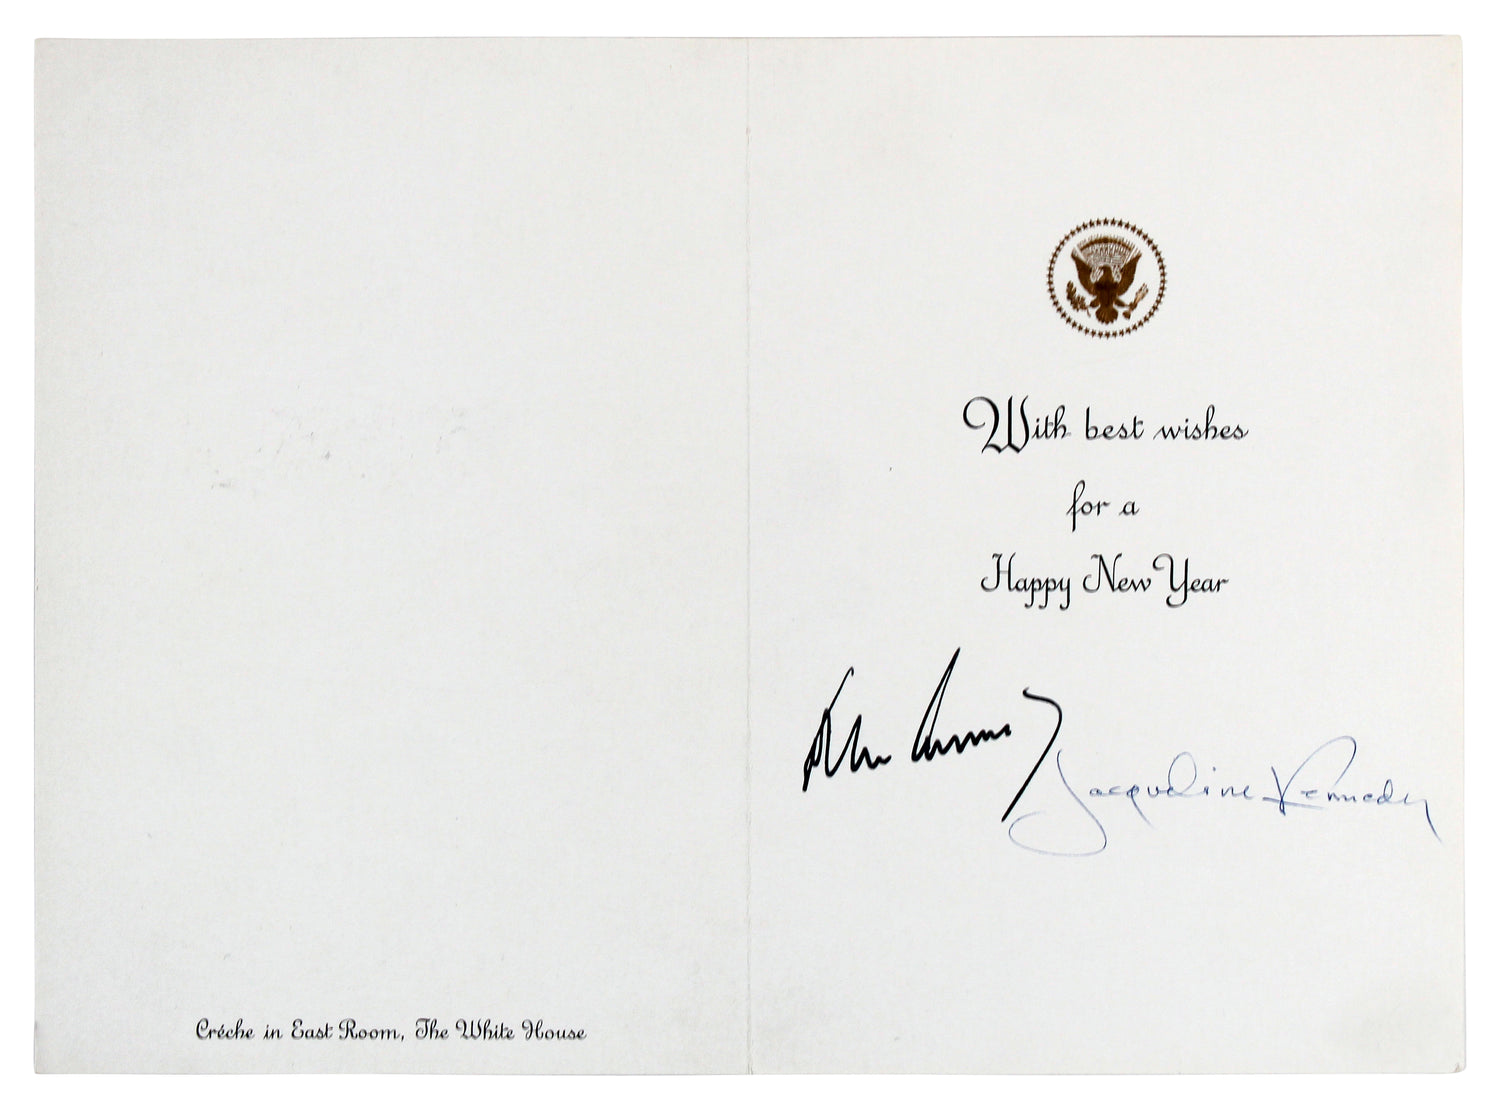 Créche in East Room, The White House
With best wishes
for a
Happy New Year
Jacqueline Kennedy